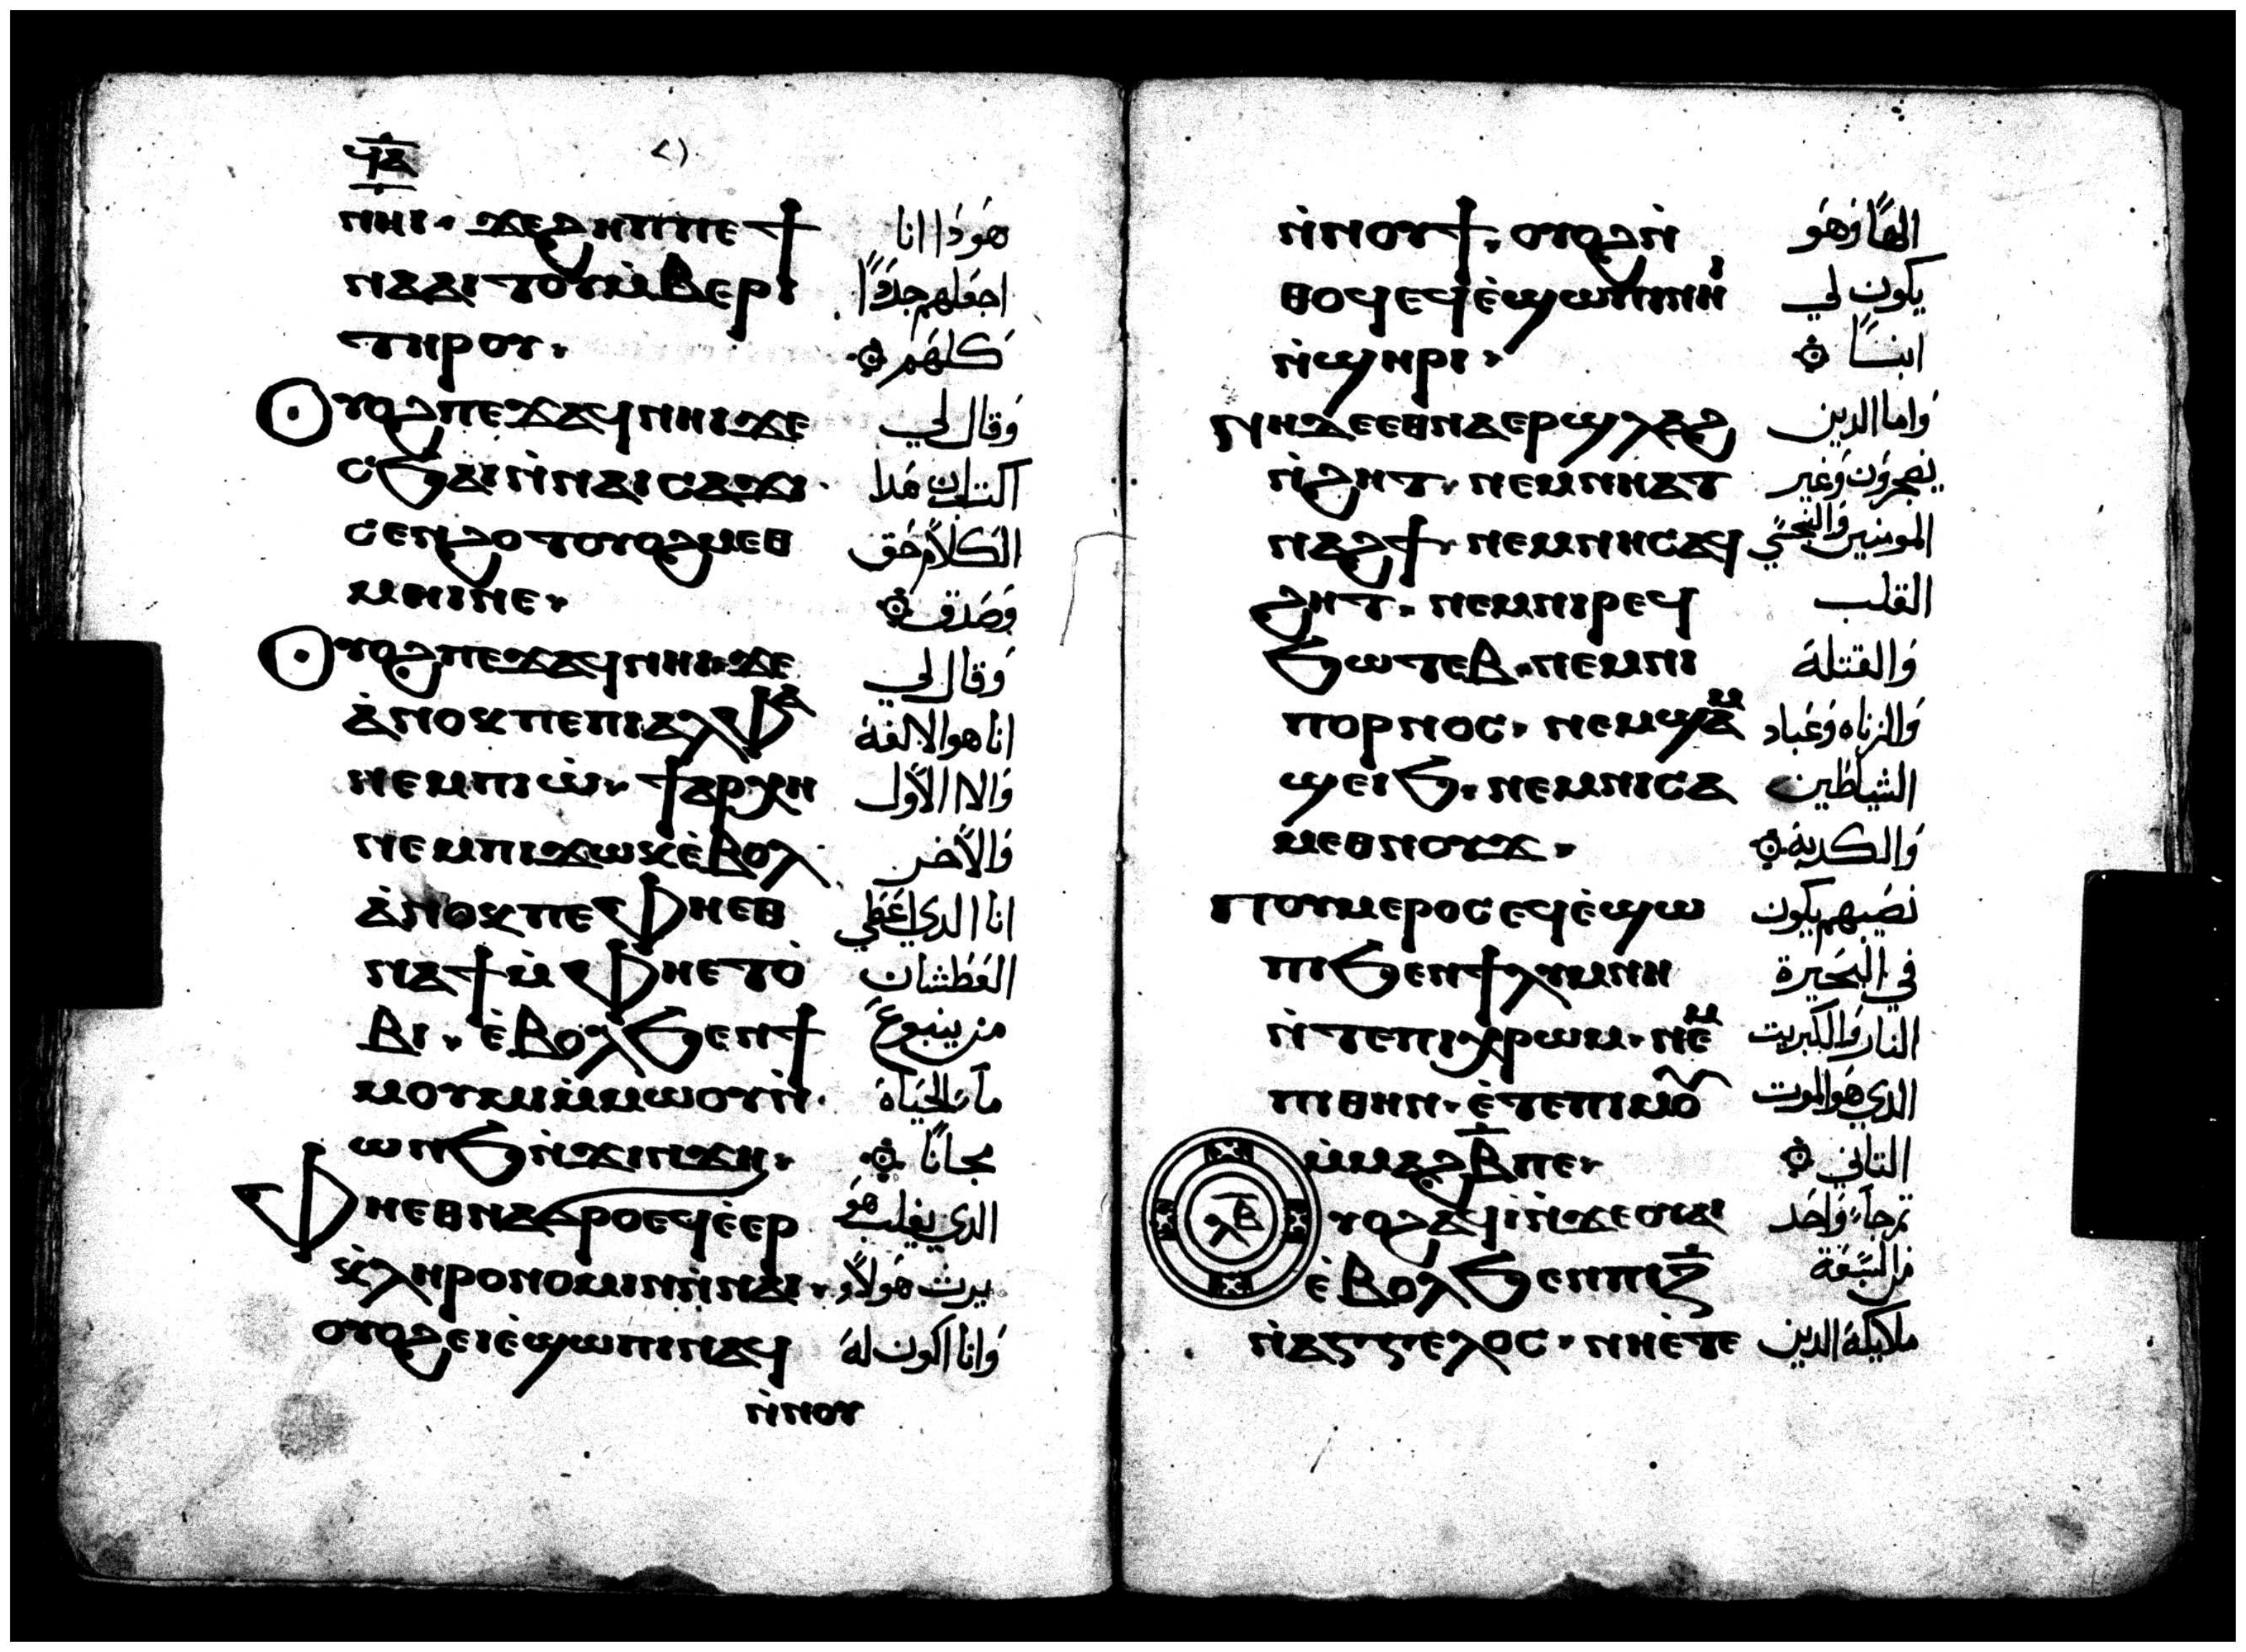 ϥⲁ ٢١
ⲛⲏⲓ· ϫⲉϩⲏⲡⲡⲉϯ هودا انا
ⲛⲁⲁⲓⲧⲟⲩⲙ̀ⲃⲉⲣⲓ اجعلهم جددًا
ⲧⲏⲣⲟⲩ· كلهم
Ⲟⲩⲟϩⲡⲉϫⲁϥⲛⲏⲓϫⲉ وقال لي
ⲥϧⲁⲓⲛ̀ⲛⲁⲓⲥⲁϫⲓ· اكتب ان هدا
ⲥⲉⲛϩⲟⲧⲟⲩⲟϩⲙⲉⲑ الكلام حق
ⲙⲏⲓⲛⲉ· وصدق
Ⲟⲩⲟϩⲡⲉϫⲁϥⲛⲏⲓ·ϫⲉ وقال لي
ⲁ̀ⲛⲟⲕⲡⲉⲡⲓⲁⲗⲫⲁ انا هو الالفه
ⲛⲉⲙⲡⲓⲱ̀· ϯⲁⲣⲭⲏ والاا الاول
ⲛⲉⲙⲡⲓϫⲱⲕⲉ̀ⲃⲟⲗ والاخر
ⲁ̀ⲛⲟⲕⲡⲉⲫⲏⲉⲑ انا الدي اعطي
ⲛⲁϯⲙ̀ⲫⲏⲉⲧⲟ̀ العطشان
ⲃⲓ· ⲉ̀ⲃⲟⲗϧⲉⲛϯ من ينبوع
ⲙⲟⲩⲙⲓⲙ̀ⲙⲱⲟⲩⲛ̀ ما الحياة
ⲱⲛϧⲛ̀ϫⲓⲛϫⲏ· مجانًا
Ⲫⲏⲉⲑⲛⲁϭⲣⲟⲉϥⲉ̀ⲉⲣ الدي يغلب هو
ⲕ̀ⲗⲏⲣⲟⲛⲟⲙⲓⲛⲛ̀ⲛⲁⲓ· يرت هولاء
ⲟⲩⲟϩⲉⲓⲉ̀ϣⲱⲡⲓⲛⲁϥ وانا اكون له
ⲛ̀ⲛⲟⲩ
ⲛ̀ⲛⲟⲩϯ· ⲟⲩⲟϩⲛ̀ الهًا وهو
ⲑⲟϥⲉϥⲉ̀ϣⲱⲡⲓⲛⲏⲓ يكون لي
ⲛ̀ϣⲏⲣⲓ· ابنًا
Ⲛⲏⲇⲉⲉⲑⲛⲁⲉⲣϣⲗⲁϩ واما الدين
ⲛ̀ϩⲏⲧ· ⲛⲉⲙⲛⲏⲁⲧ يضجرون وغير
ⲛⲁϩϯ· ⲛⲉⲙⲛⲏⲥⲁϥ المومنين والنجسي
ϩⲏⲧ· ⲛⲉⲙⲛⲓⲣⲉϥ القلب
ϧⲱⲧⲉⲃ·ⲛⲉⲙⲛⲓ والقتلة
ⲡⲟⲣⲛⲟⲥ· ⲛⲉⲙϣⲁⲙ والزناه وعباد
ϣⲉⲓϧ· ⲛⲉⲙⲛⲓⲥⲁ الشياطين
ⲙ̀ⲙⲉⲑⲛⲟⲩϫ· والكدبة
Ⲡⲟⲩⲙⲉⲣⲟⲥⲉϥⲉ̀ϣⲱ نصيبهم يكون
ⲡⲓϧⲉⲛϯⲗⲩⲙⲛⲏ في البحيرة
ⲛ̀ⲧⲉⲡⲓⲭⲣⲱⲙ·ⲛⲉⲙ النار والكبريت
ⲡⲓⲑⲏⲛ· ⲉ̀ⲧⲉⲡⲓⲙⲟⲩ الدي هو الموت
ⲙ̀ⲙⲁϩⲃ̅ⲡⲉ· التاني
ⲗⲃ Ⲟⲩⲟϩⲁϥⲓ̀ⲛ̀ϫⲉⲟⲩⲁⲓ تم جاء واحد
ⲉ̀ⲃⲟⲗϧⲉⲛⲡⲓⲍ̅ من السبعة
ⲛ̀ⲁⲅⲅⲉⲗⲟⲥ· ⲛⲏⲉ̀ⲧⲉ ملايكة الدين